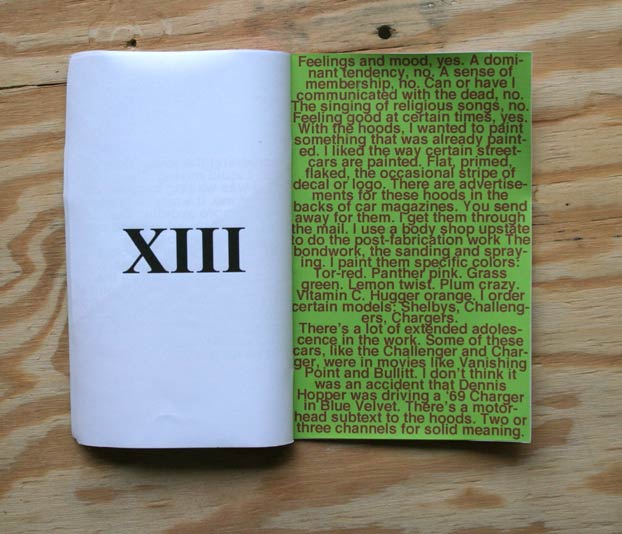 XIII
Feelings and mood, yes. A domi-
nant tendency, no. A sense of
membership, no. Can or have I
communicated with the dead, no.
The singing of religious songs, no.
Feeling good at certain times, yes.
With the hoods, I wanted to paint
something that was already paint-
ed. I liked the way certain street-
cars are painted. Flat, primed,
flaked, the occasional stripe of
decal or logo. There are advertise-
ments for these hoods in the
backs of car magazines. You send
away for them. I get them through
the mail. I use a body shop upstate
to do the post-fabrication work The
bondwork, the sanding and spray-
ing. I paint them specific colors:
Tor-red. Panther pink. Grass
green. Lemon twist. Plum crazy.
Vitamin C. Hugger orange. I order
certain models: Shelbys, Challeng-
ers, Chargers.
There's a lot of extended adoles-
cence in the work. Some of these
cars, like the Challenger and Char-
ger, were in movies like Vanishing
Point and Bullitt. I don't think it
was an accident that Dennis
Hopper was driving a '69 Charger
in Blue Velvet. There's a motor-
head subtext to the hoods. Two or
three channels for solid meaning.